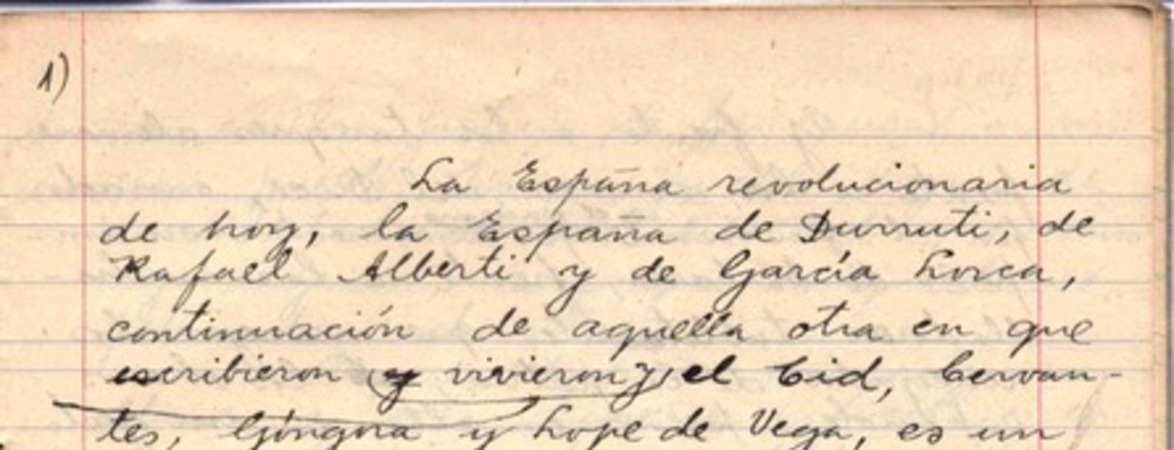 1)
La España revolucionaria
de hoy, la España de Durruti, de
Rafael Alberti y de García Lorca,
continuación de aquella otra en que
escribieron (y vivieron) el Cid, Cervan-
tes, Góngora y Lope de Vega, es un